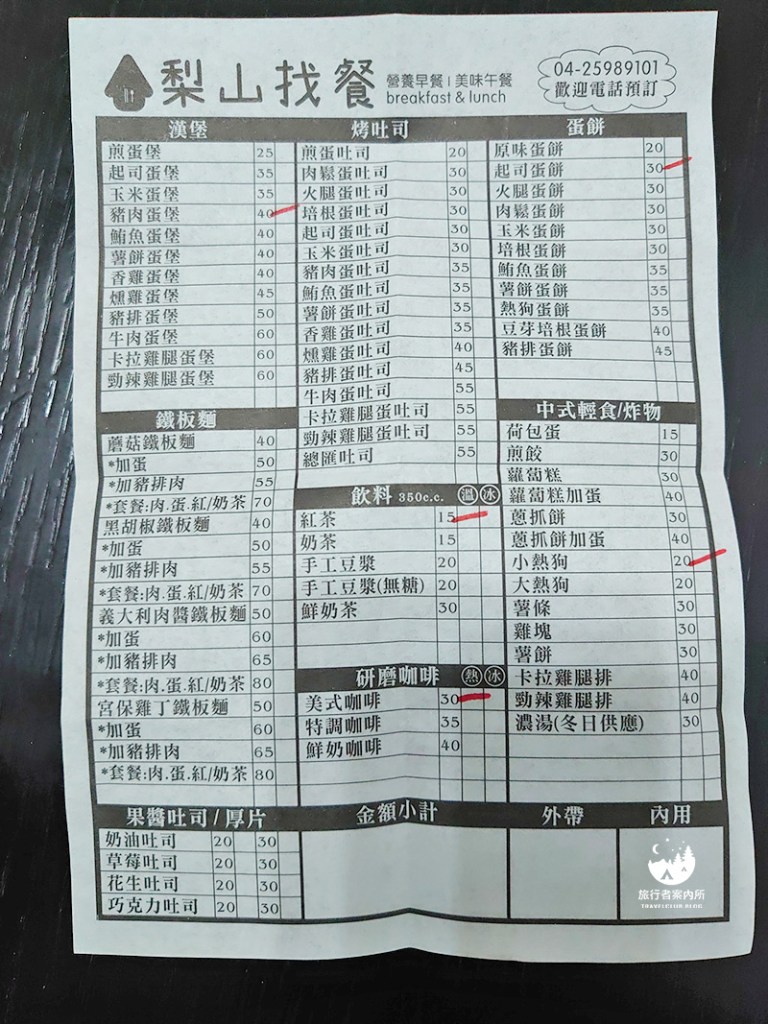 梨山找餐
營養早餐 | 美味午餐
breakfast & lunch
04-25989101
歡迎電話預訂
漢堡
煎蛋堡 25
起司蛋堡 35
玉米蛋堡 35
豬肉蛋堡 40
鮪魚蛋堡 40
薯餅蛋堡 40
香雞蛋堡 40
燻雞蛋堡 45
豬排蛋堡 50
牛肉蛋堡 60
卡拉雞腿蛋堡 60
勁辣雞腿蛋堡 60
鐵板麵
蘑菇鐵板麵 40
*加蛋 50
*加豬排肉 55
*套餐:肉.蛋.紅/奶茶 70
黑胡椒鐵板麵 40
*加蛋 50
*加豬排肉 55
*套餐:肉.蛋.紅/奶茶 70
義大利肉醬鐵板麵 50
*加蛋 60
*加豬排肉 65
*套餐:肉.蛋.紅/奶茶 80
宮保雞丁鐵板麵 50
*加蛋 60
*加豬排肉 65
*套餐:肉.蛋.紅/奶茶 80
烤吐司
煎蛋吐司 20
肉鬆蛋吐司 30
火腿蛋吐司 30
培根蛋吐司 30
起司蛋吐司 30
玉米蛋吐司 30
豬肉蛋吐司 35
鮪魚蛋吐司 35
薯餅蛋吐司 35
香雞蛋吐司 35
燻雞蛋吐司 40
豬排蛋吐司 45
牛肉蛋吐司 55
卡拉雞腿蛋吐司 55
勁辣雞腿蛋吐司 55
總匯吐司 55
飲料 350c.c. 溫 冰
紅茶 15
奶茶 15
手工豆漿 20
手工豆漿(無糖) 20
鮮奶茶 30
研磨咖啡 熱 冰
美式咖啡 30
特調咖啡 35
鮮奶咖啡 40
蛋餅
原味蛋餅 20
起司蛋餅 30
火腿蛋餅 30
肉鬆蛋餅 30
玉米蛋餅 30
培根蛋餅 30
鮪魚蛋餅 35
薯餅蛋餅 35
熱狗蛋餅 35
豆芽培根蛋餅 40
豬排蛋餅 45
中式輕食/炸物
荷包蛋 15
煎餃 30
蘿蔔糕 30
蘿蔔糕加蛋 40
蔥抓餅 30
蔥抓餅加蛋 40
小熱狗 20
大熱狗 20
薯條 30
雞塊 30
薯餅 30
卡拉雞腿排 40
勁辣雞腿排 40
濃湯(冬日供應) 30
果醬吐司/厚片
奶油吐司 20 30
草莓吐司 20 30
花生吐司 20 30
巧克力吐司 20 30
金額小計
外帶
內用
旅行者案內所
TRAVELCLUB.BLOG